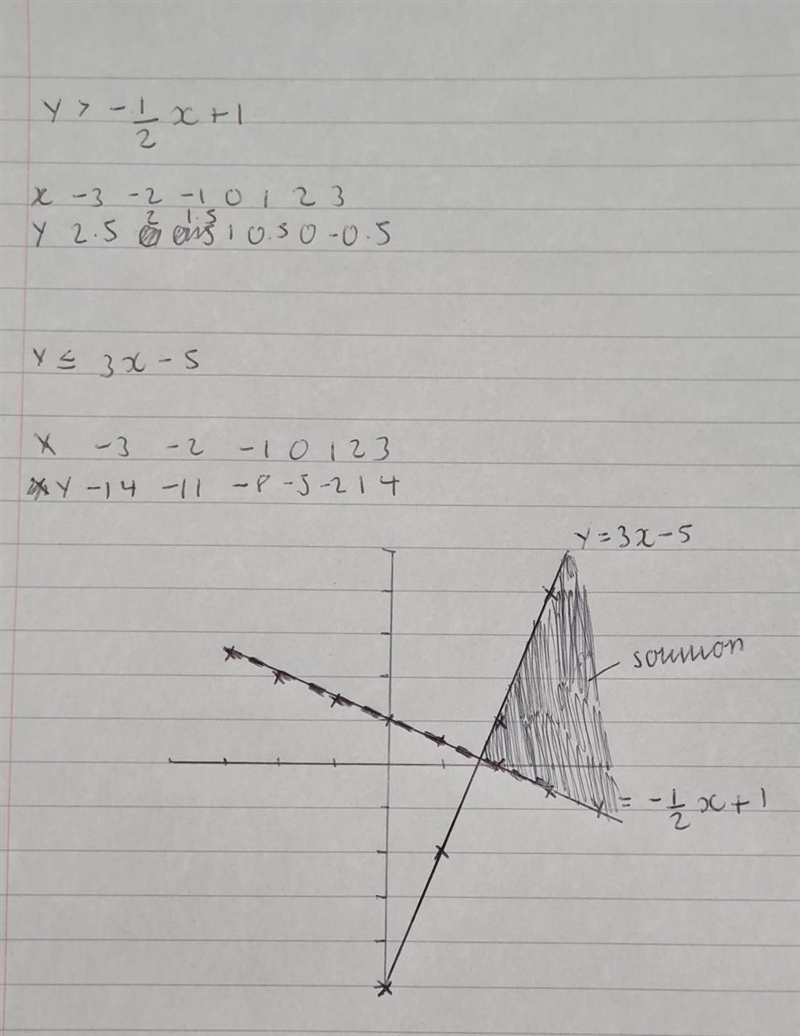 y > -1/2 x + 1
x -3 -2 -1 0 1 2 3
y 2.5 2 1.5 1 0.5 0 -0.5
y ≤ 3x - 5
x -3 -2 -1 0 1 2 3
y -14 -11 -8 -5 -2 1 4
y = 3x - 5
solution
y = -1/2 x + 1